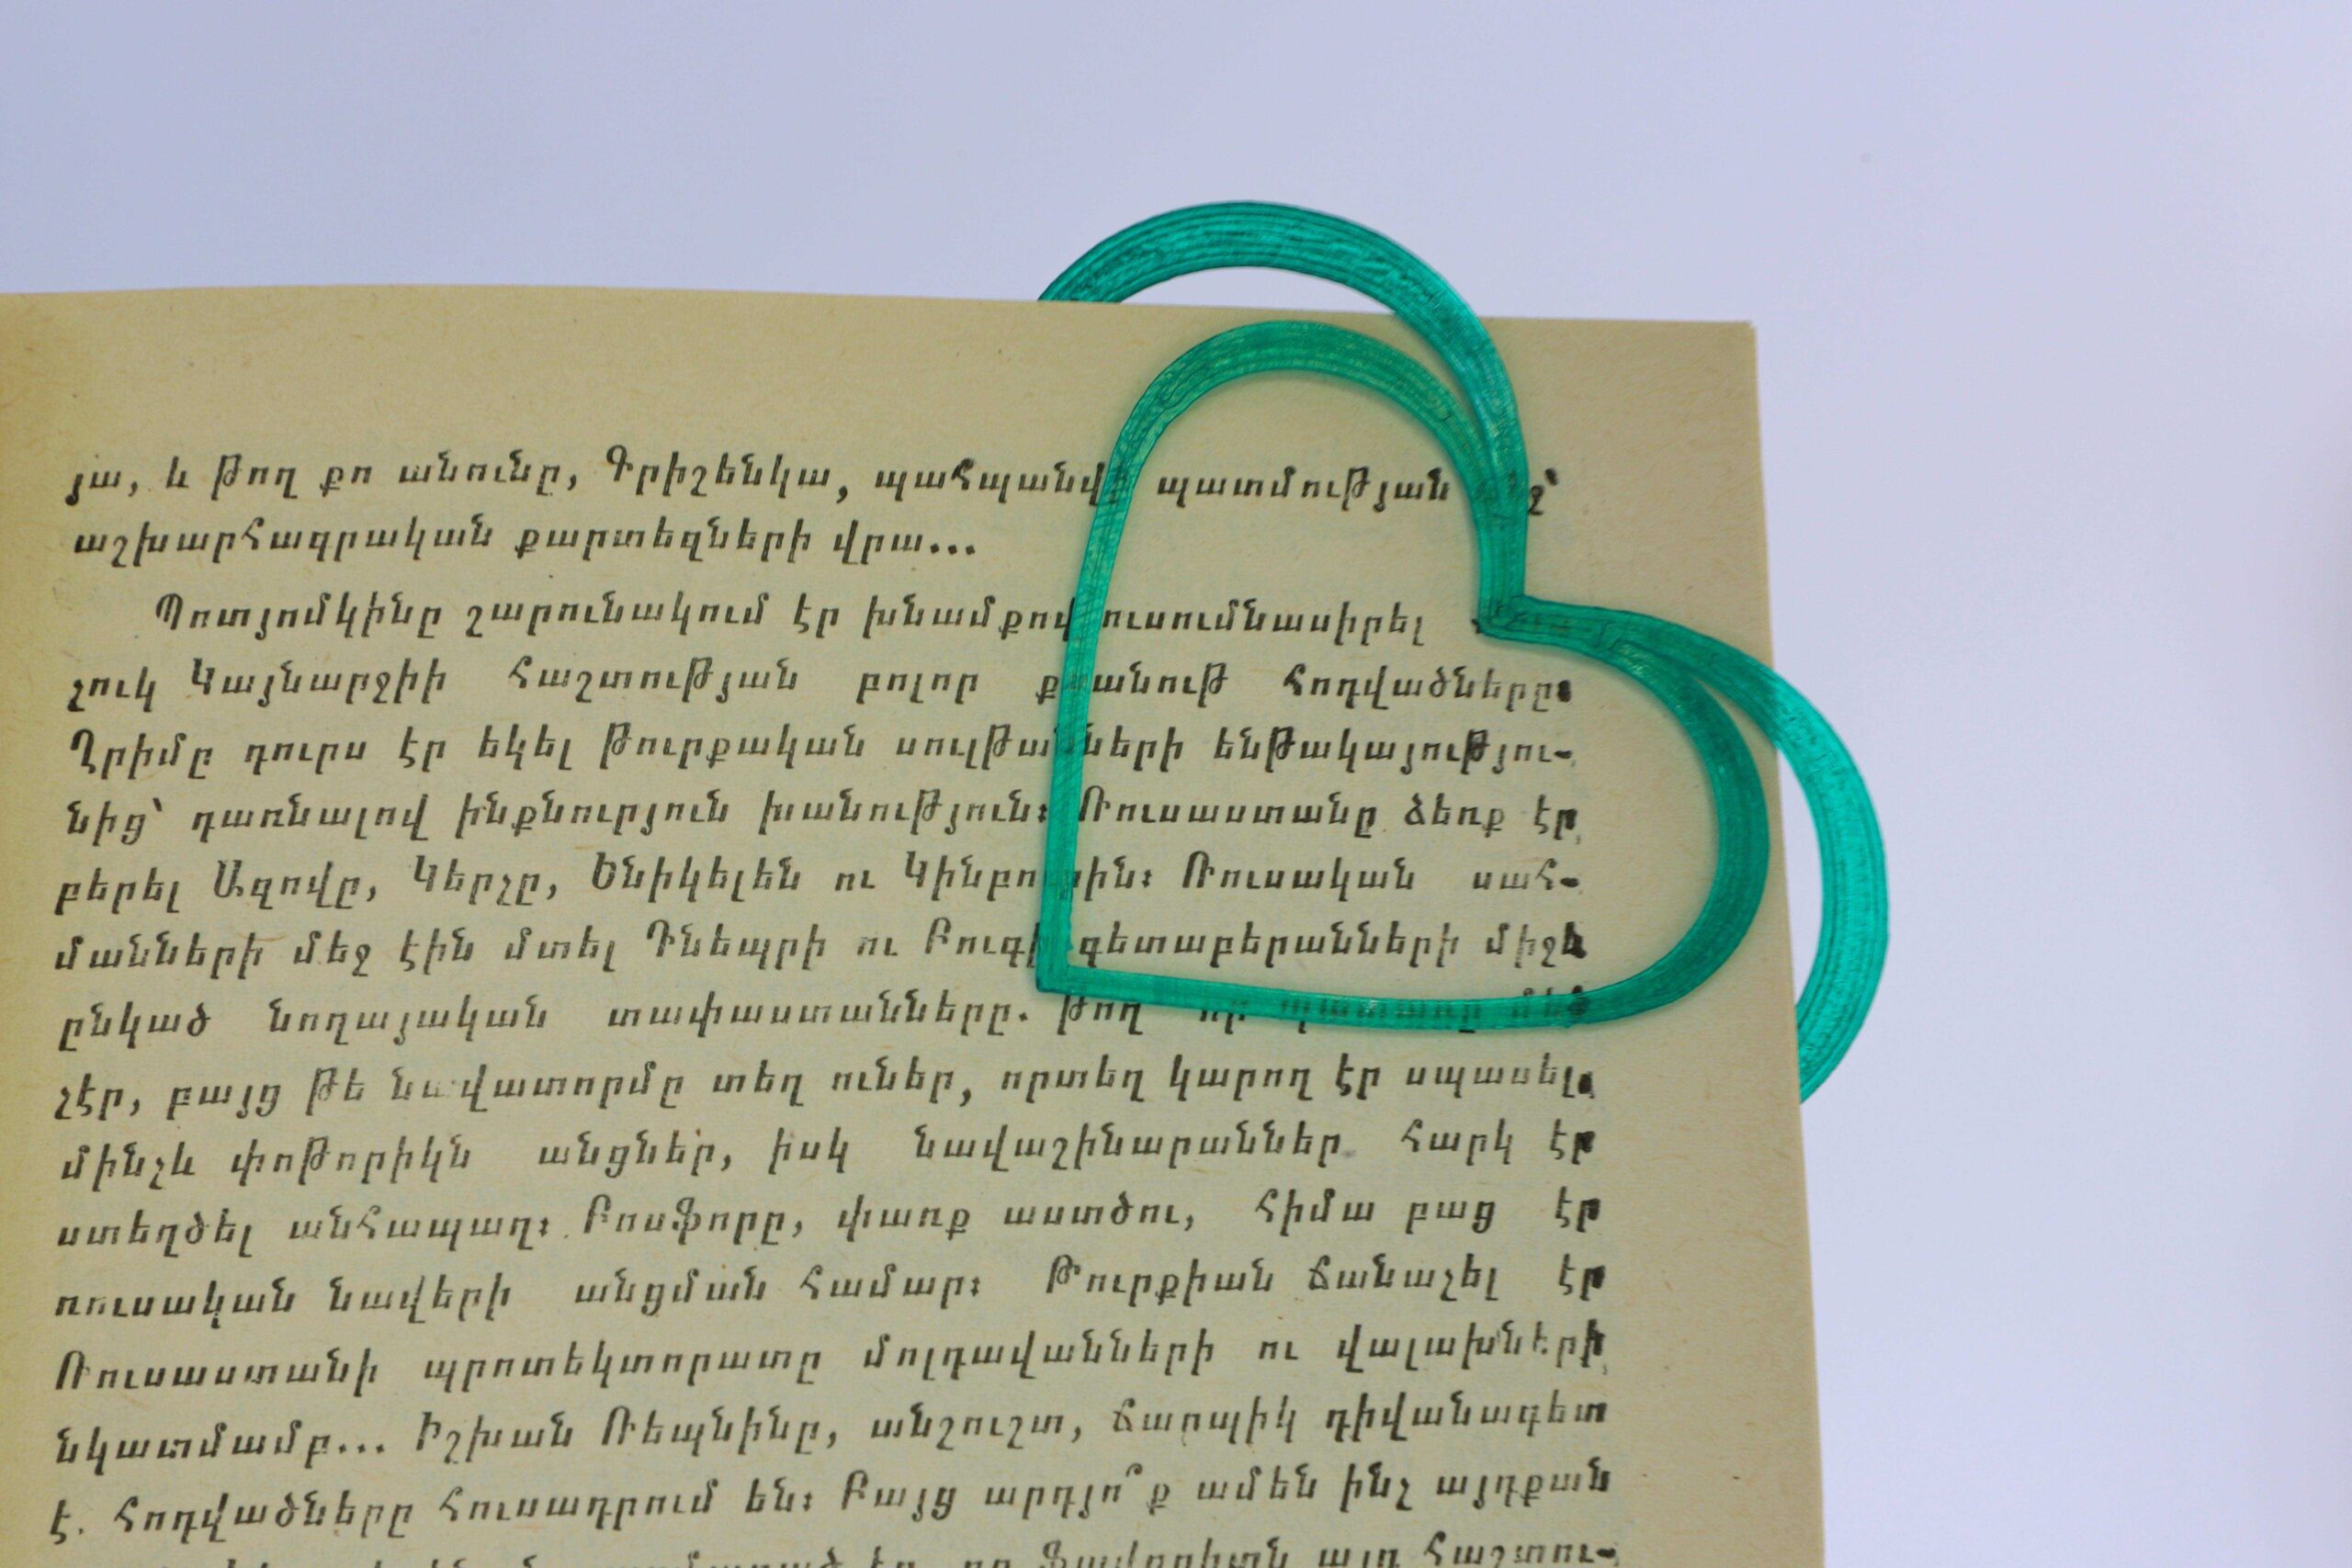 յա, և թող քո անունը, Գրիշենկա, պահպանվի պատմության մեջ՝
աշխարհագրական քարտեզների վրա...
Պոտյոմկինը շարունակում էր խնամքով ուսումնասիրել
չուկ Կայնարջիի հաշտության բոլոր քսանութ հոդվածները։
Ղրիմը դուրս էր եկել թուրքական սուլթանների ենթակայությու-
նից՝ դառնալով ինքնուրյուն խանություն։ Ռուսաստանը ձեռք էր
բերել Ազովը, Կերչը, Ենիկելեն ու Կինբուրին։ Ռուսական սահ-
մանների մեջ էին մտել Դնեպրի ու Բուգի գետաբերանների միջև
ընկած նողայական տափաստանները. թող որ պատառը մեծ
չէր, բայց թե նավատորմը տեղ ուներ, որտեղ կարող էր սպասել,
մինչև փոթորիկն անցներ, իսկ նավաշինարաններ հարկ էր
ստեղծել անհապաղ։ Բոսֆորը, փառք աստծու, հիմա բաց էր
ռուսական նավերի անցման համար։ Թուրքիան ճանաչել էր
Ռուսաստանի պրոտեկտորատը մոլդավանների ու վալախների
նկատմամբ... Իշխան Ռեպնինը, անշուշտ, ճարպիկ դիվանագետ
է. հոդվածները հուսադրում են։ Բայց արդյո՞ք ամեն ինչ այդքան
էր, որ Ֆավորիտն այդ հաշտու-